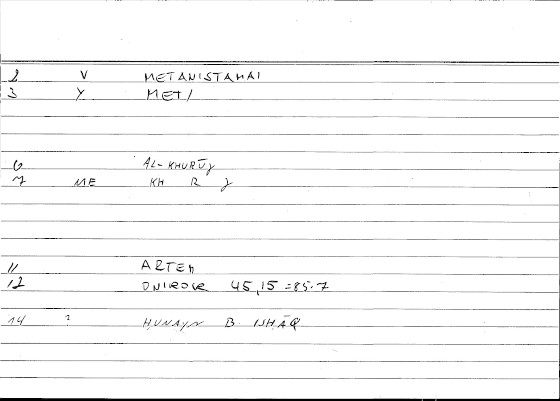 2 V METANISTAMAI
3 Y METI
6 AL-KHURŪJ
7 ME KH R J
11 ARTEM
12 ONIROCR 45,15 = 85.7
14 ? HUNAYN B. ISHĀQ